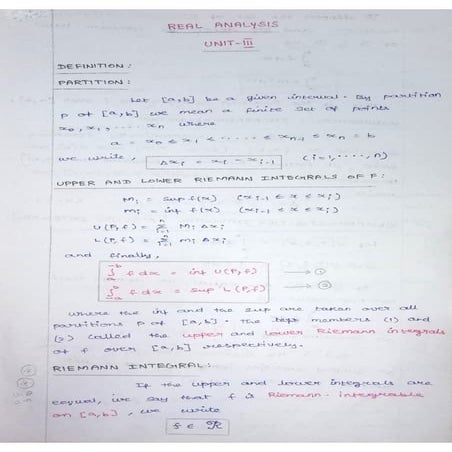 REAL ANALYSIS
UNIT-III
DEFINITION:
PARTITION:
Let [a,b] be a given interval. By partition
P of [a,b] we mean a finite set of points
x₀, x₁, ..... xₙ where
a = x₀ ≤ x₁ ≤ ...... ≤ xₙ₋₁ ≤ xₙ = b
we write, Δxᵢ = xᵢ - xᵢ₋₁ (i=1,....,n)
UPPER AND LOWER RIEMANN INTEGRALS OF F:
Mᵢ = sup f(x) (xᵢ₋₁ ≤ x ≤ xᵢ)
mᵢ = inf f(x) (xᵢ₋₁ ≤ x ≤ xᵢ)
U(P,f) = Σⁿᵢ₌₁ Mᵢ Δxᵢ
L(P,f) = Σⁿᵢ₌₁ mᵢ Δxᵢ
and finally,
∫ₐ⁻ᵇ f dx = inf U(P,f) → ①
∫₋ₐᵇ f dx = sup L(P,f) → ②
where the inf and the sup are taken over all
partitions P of [a,b]. The left members (1) and
(2) called the upper and lower Riemann integrals
of f over [a,b] respectively.
RIEMANN INTEGRAL:
If the upper and lower integrals are
equal, we say that f is Riemann-integrable
on [a,b], we write
f ∈ ℛ